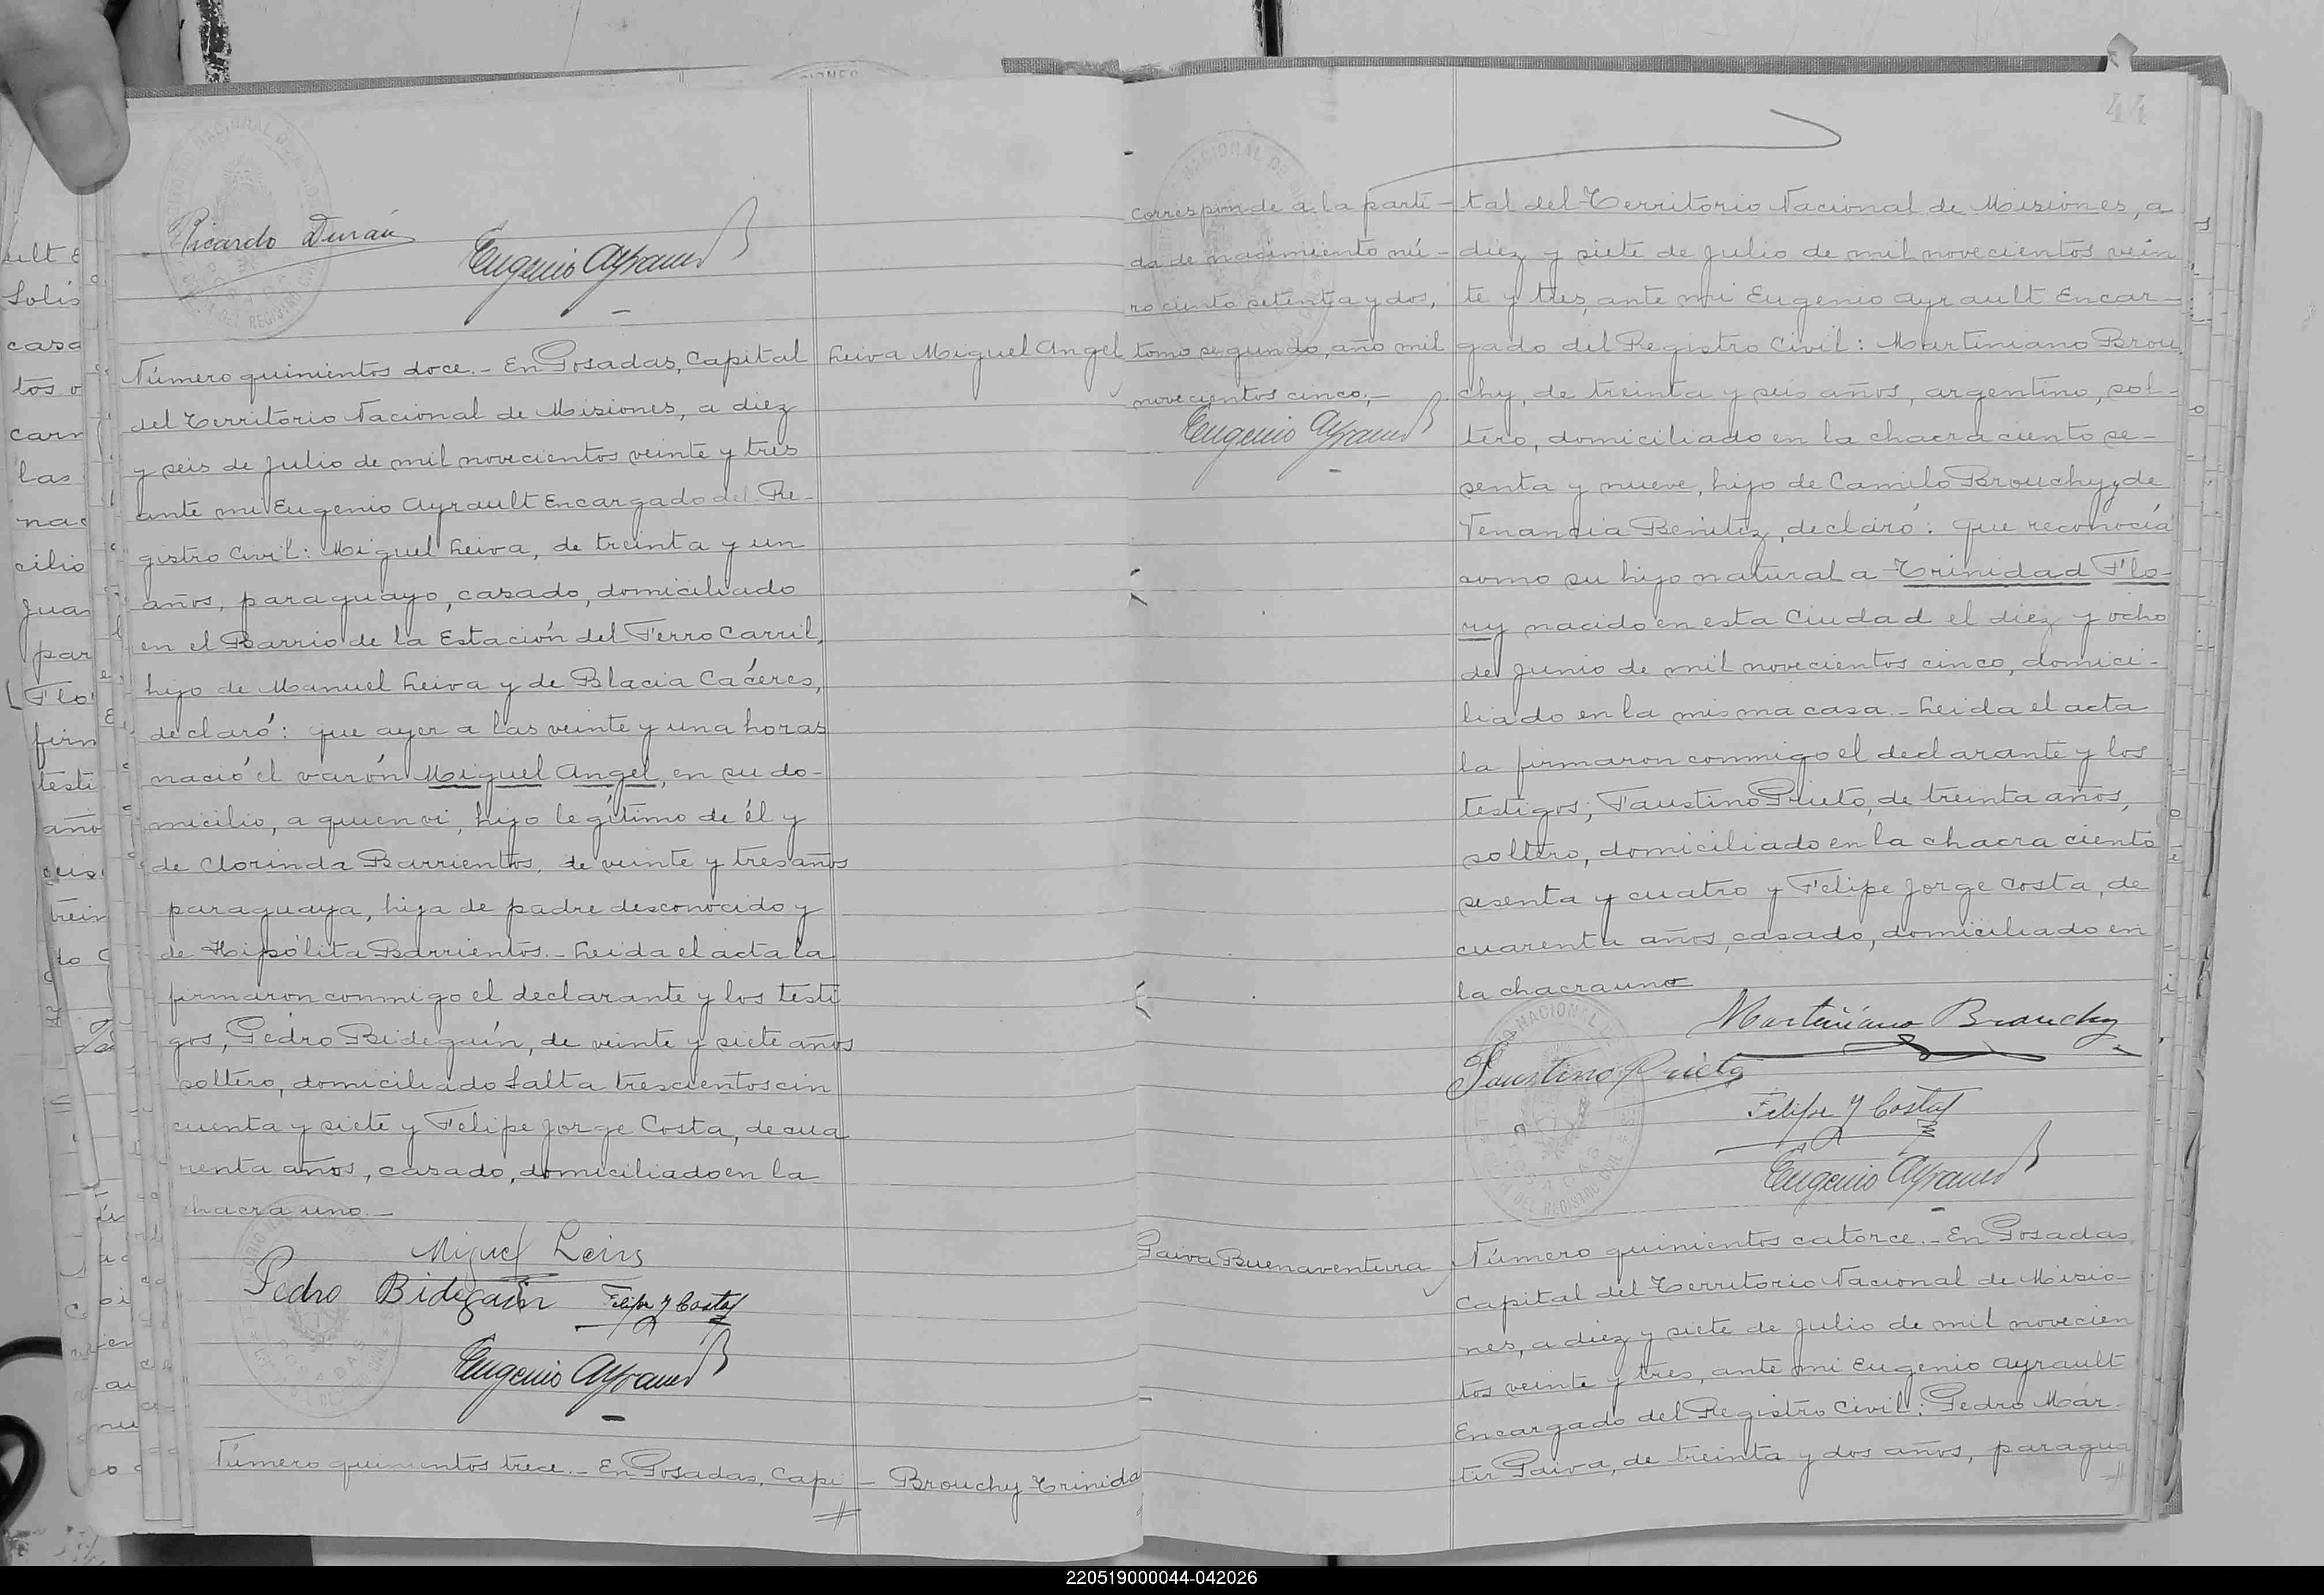 Ricardo Durán
Eugenio Ayrault
Número quinientos doce.- En Posadas, Capital
del Territorio Nacional de Misiones, a diez
y seis de Julio de mil novecientos veinte y tres
ante mi Eugenio Ayrault Encargado del Re-
gistro Civil: Miguel Leiva, de treinta y un
años, paraguayo, casado, domiciliado
en el Barrio de la Estación del Ferro Carril,
hijo de Manuel Leiva y de Blacia Cáceres,
declaró: que ayer a las veinte y una horas
nació el varón Miguel Angel, en su do-
micilio, a quien vi, hijo legítimo de él y
de Clorinda Barrientos, de veinte y tres años
paraguaya, hija de padre desconocido y
de Hipólita Barrientos.- Leida el acta la
firmaron conmigo el declarante y los testi
gos, Pedro Bidegain, de veinte y siete años
soltero, domiciliado Salta trescientos cin
cuenta y siete y Felipe Jorge Costa, de cua
renta años, casado, domiciliado en la
chacra uno.-
Miguel Leiva
Pedro Bidegain
Felipe J Costa
Eugenio Ayrault
Número quinientos trece.- En Posadas, Capi-
Leiva Miguel Angel
Brouchy Trinida
corresponde a la parti-
da de nacimiento nú-
ro ciento setenta y dos,
tomo segundo, año mil
novecientos cinco;-
Eugenio Ayrault
Paiva Buenaventura
44
tal del Territorio Nacional de Misiones, a
diez y siete de Julio de mil novecientos vein
te y tres, ante mi Eugenio Ayrault Encar-
gado del Registro Civil: Martiniano Brou
chy, de treinta y seis años, argentino, sol-
tero, domiciliado en la chacra ciento se-
senta y nueve, hijo de Camilo Brouchy y de
Venancia Benitez, declaró: que reconocía
como su hijo natural a Trinidad Flo-
ry nacido en esta Ciudad el diez y ocho
de Junio de mil novecientos cinco, domici-
liado en la misma casa.- Leida el acta
la firmaron conmigo el declarante y los
testigos; Faustino Prieto, de treinta años,
soltero, domiciliado en la chacra ciento
sesenta y cuatro y Felipe Jorge Costa, de
cuarenta años, casado, domiciliado en
la chacra uno
Martiniano Brouchy
Faustino Prieto
Felipe J Costa
Eugenio Ayrault
Número quinientos catorce.- En Posadas
Capital del Territorio Nacional de Misio-
nes, a diez y siete de Julio de mil novecien
tos veinte y tres, ante mi Eugenio Ayrault
Encargado del Registro Civil: Pedro Már-
tir Paiva, de treinta y dos años, paragua
220519000044-042026